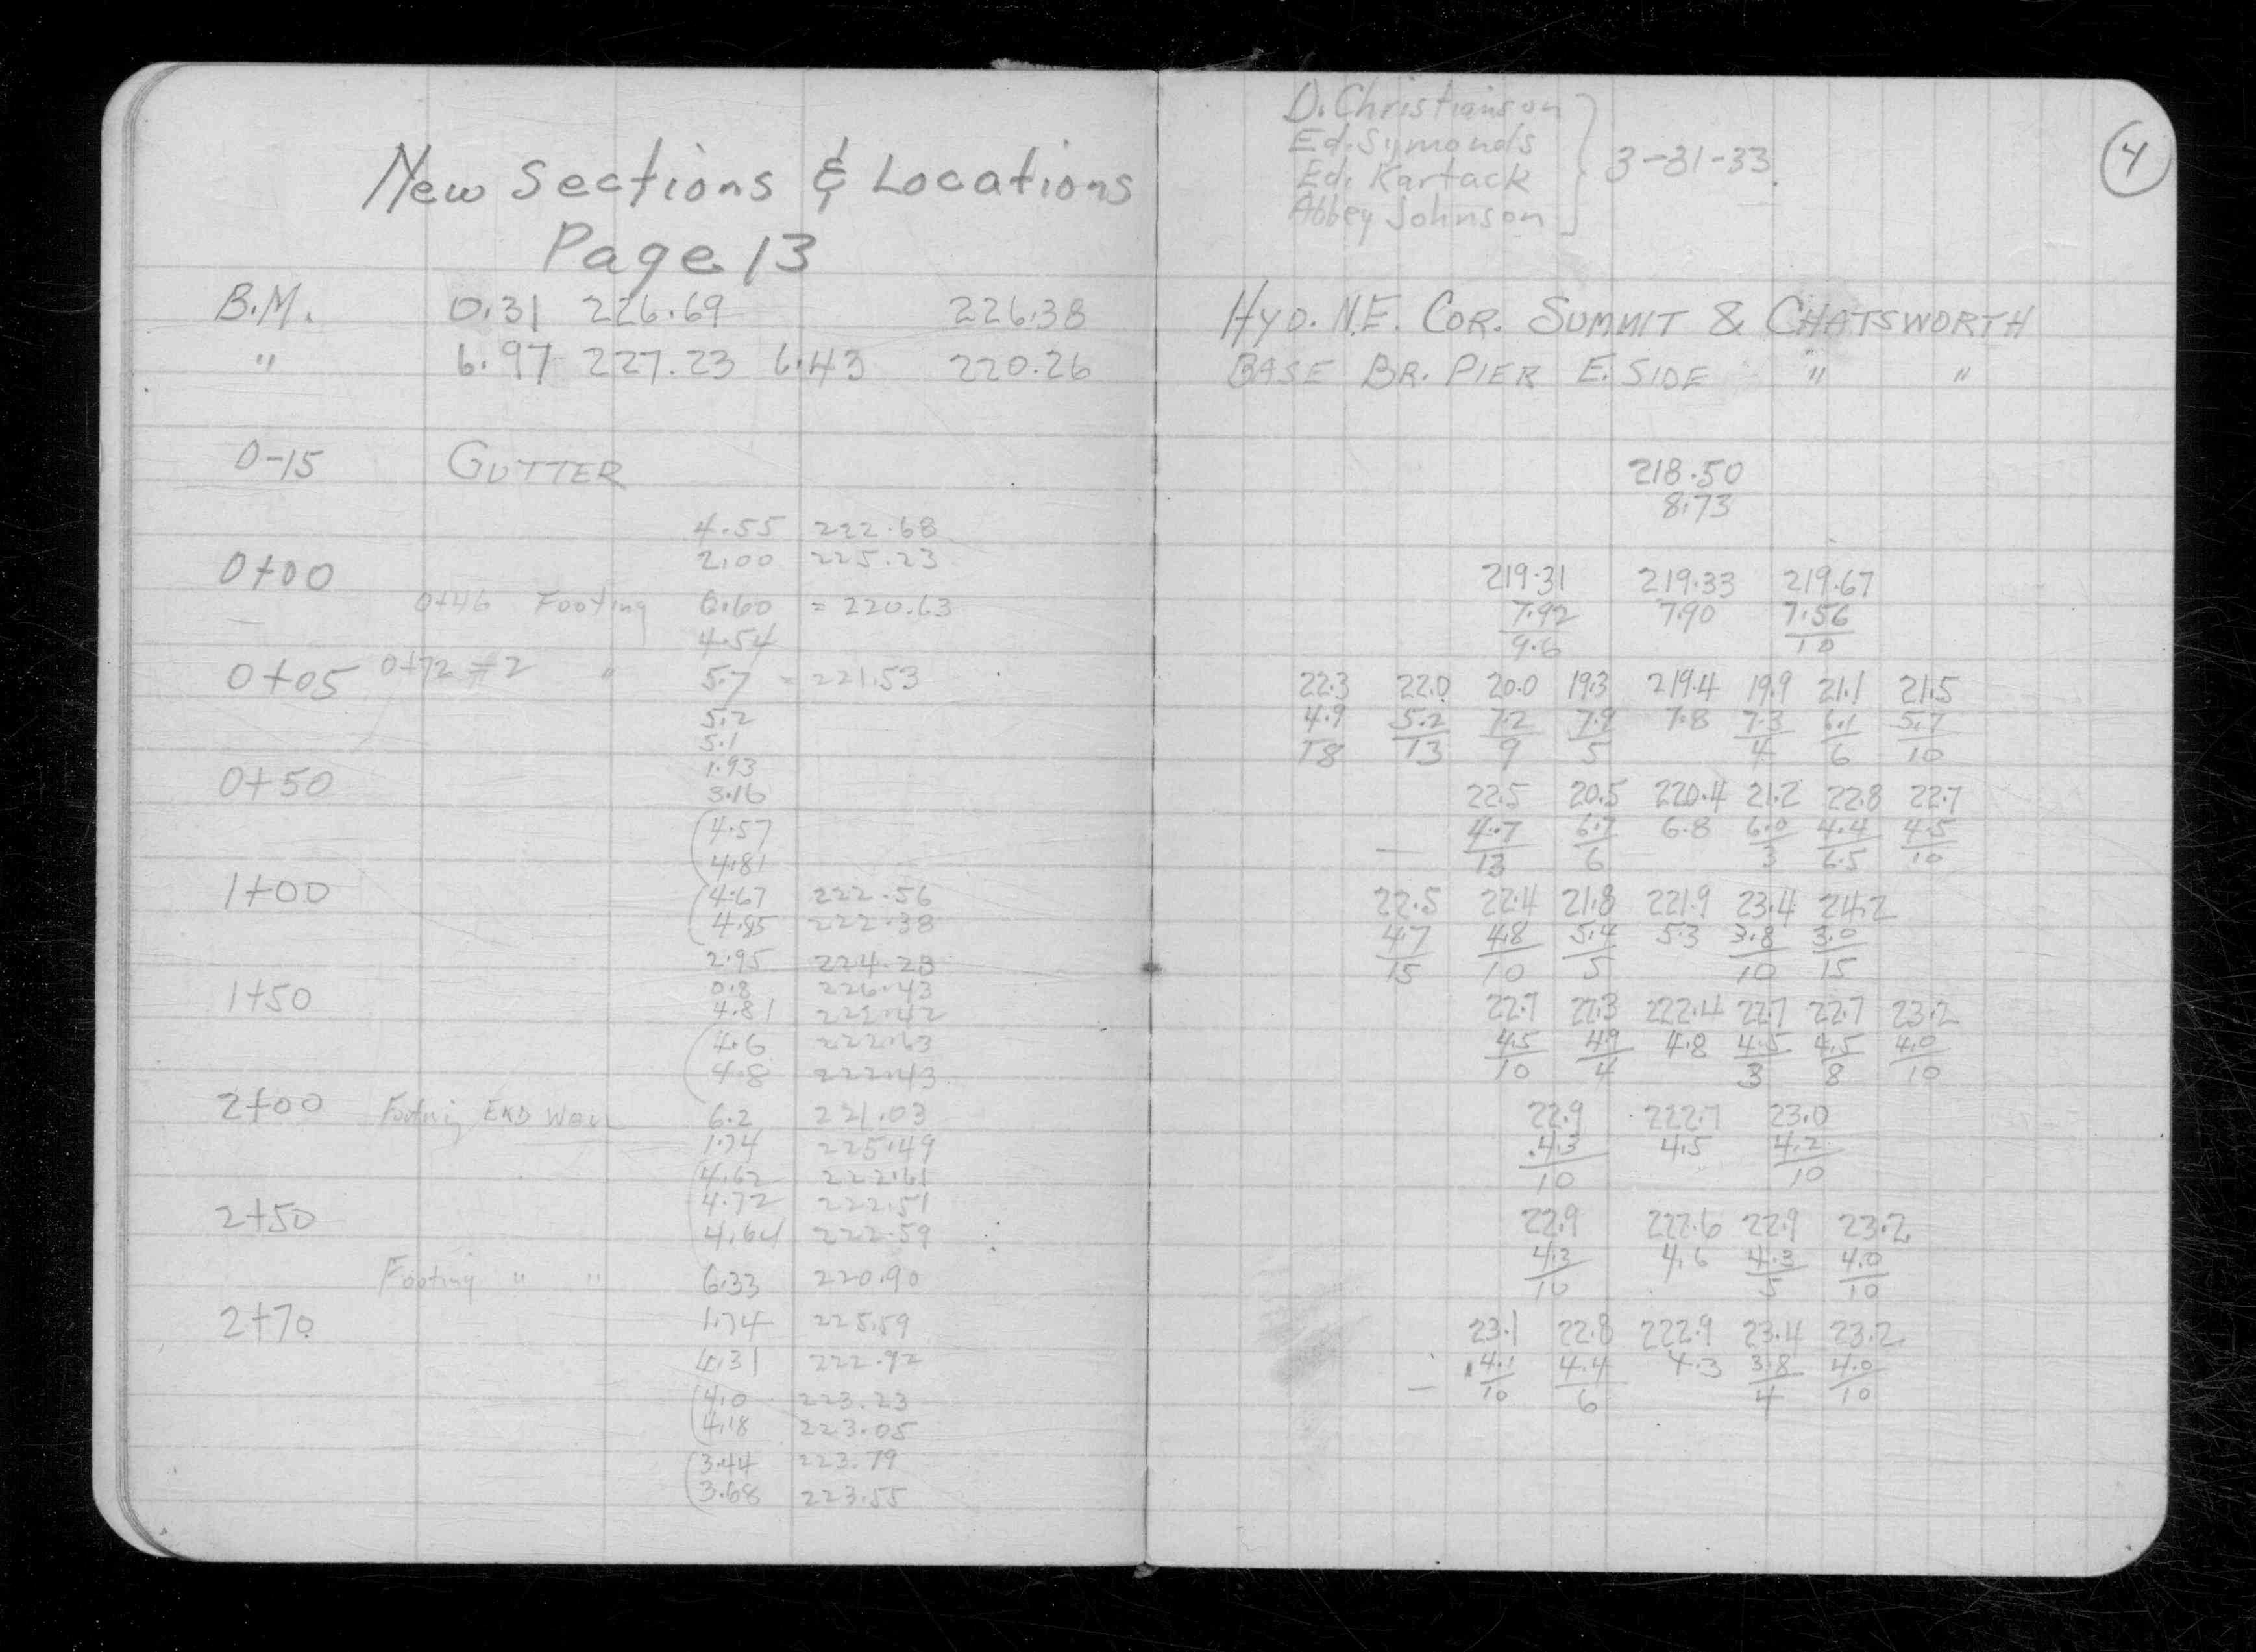 New Sections & Locations
Page 13
B.M. 0.31 226.69 226.38
" 6.97 227.23 6.43 220.26
0-15 GUTTER
4.55 222.68
2.00 225.23
0+00
0+46 Footing 6.60 = 220.63
4.54
0+05 0+72 #2 " 5.7 = 221.53
5.2
5.1
1.93
0+50 3.16
(4.57
4.81
1+00 (4.67 222.56
4.85 222.38
2.95 224.28
1+50 0.8 226.43
4.81 222.42
(4.6 222.63
4.8 222.43
2+00 Footing END Wall 6.2 221.03
1.74 225.49
(4.62 222.61
4.72 222.51
2+50 4.64 222.59
Footing " " 6.33 220.90
2+70 1.74 225.59
4.31 222.92
(4.0 223.23
4.18 223.05
(3.44 223.79
3.68 223.55
D. Christianson
Ed. Symonds
Ed. Kartack
Abbey Johnson
3-31-33
4
HYD. N.E. COR. SUMMIT & CHATSWORTH
BASE BR. PIER E. SIDE " "
218.50
8.73
219.31 219.33 219.67
7.92 7.90 7.56
9.6 10
22.3 22.0 20.0 19.3 219.4 19.9 21.1 21.5
4.9 5.2 7.2 7.9 7.8 7.3 6.1 5.7
18 13 9 5 4 6 10
22.5 20.5 220.4 21.2 22.8 22.7
4.7 6.7 6.8 6.0 4.4 4.5
13 6 3 6.5 10
22.5 22.4 21.8 221.9 23.4 24.2
4.7 4.8 5.4 5.3 3.8 3.0
15 10 5 10 15
22.7 22.3 222.4 22.7 22.7 23.2
4.5 4.9 4.8 4.5 4.5 4.0
10 4 3 8 10
22.9 222.7 23.0
4.3 4.5 4.2
10 10
22.9 222.6 22.9 23.2
4.3 4.6 4.3 4.0
10 5 10
23.1 22.8 222.9 23.4 23.2
4.1 4.4 4.3 3.8 4.0
10 6 4 10